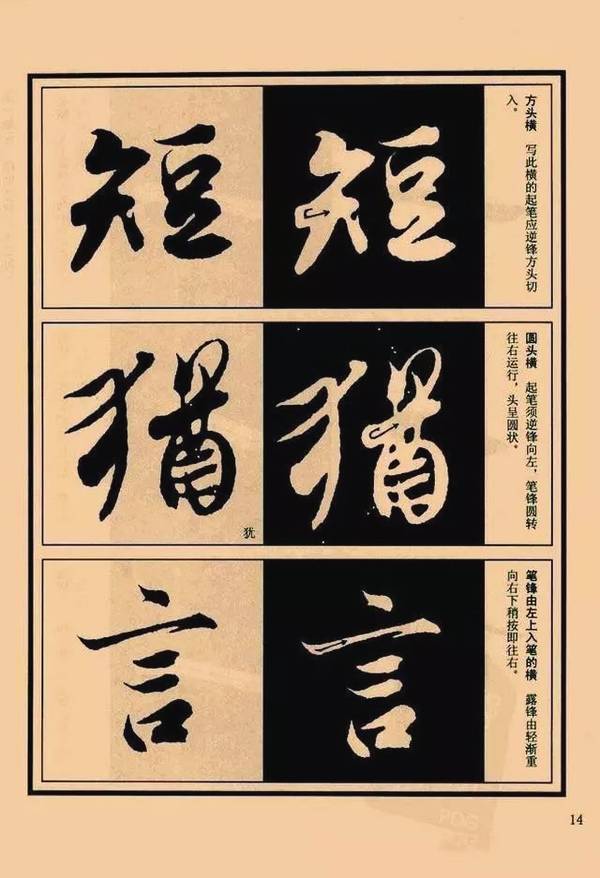 方头横　写此横的起笔应逆锋方头切
入。
短
短
圆头横　起笔须逆锋向左，笔锋圆转
往右运行，头呈圆状。
猶
猶
犹
笔锋由左上入笔的横　露锋由轻渐重
向右下稍按即往右。
言
言
14